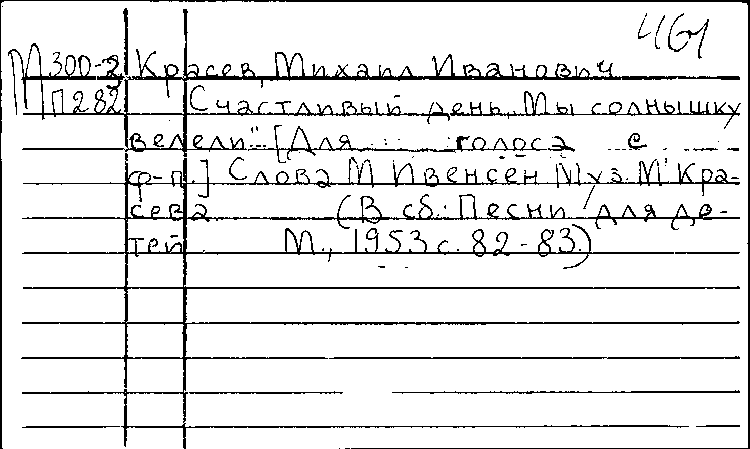 461
М 300-2 Красев, Михаил Иванович
П 282 Счастливый день. "Мы солнышку
велели" [Для голоса с
ф-п.] Слова М. Ивенсен Муз. М. Кра-
сева (В сб.: Песни для де-
тей М., 1953 с. 82-83.)